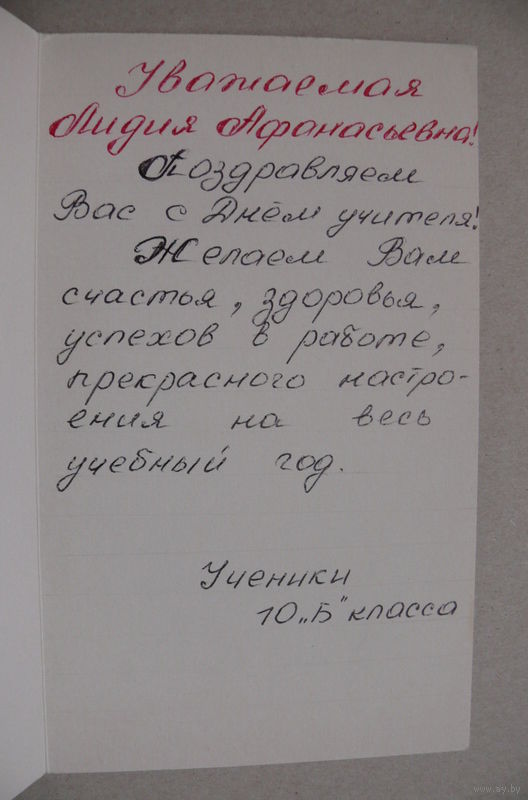 Уважаемая
Лидия Афанасьевна!
Поздравляем
Вас с Днём учителя!
Желаем Вам
счастья, здоровья,
успехов в работе,
прекрасного настро-
ения на весь
учебный год.
Ученики
10 „Б" класса
www.ay.by